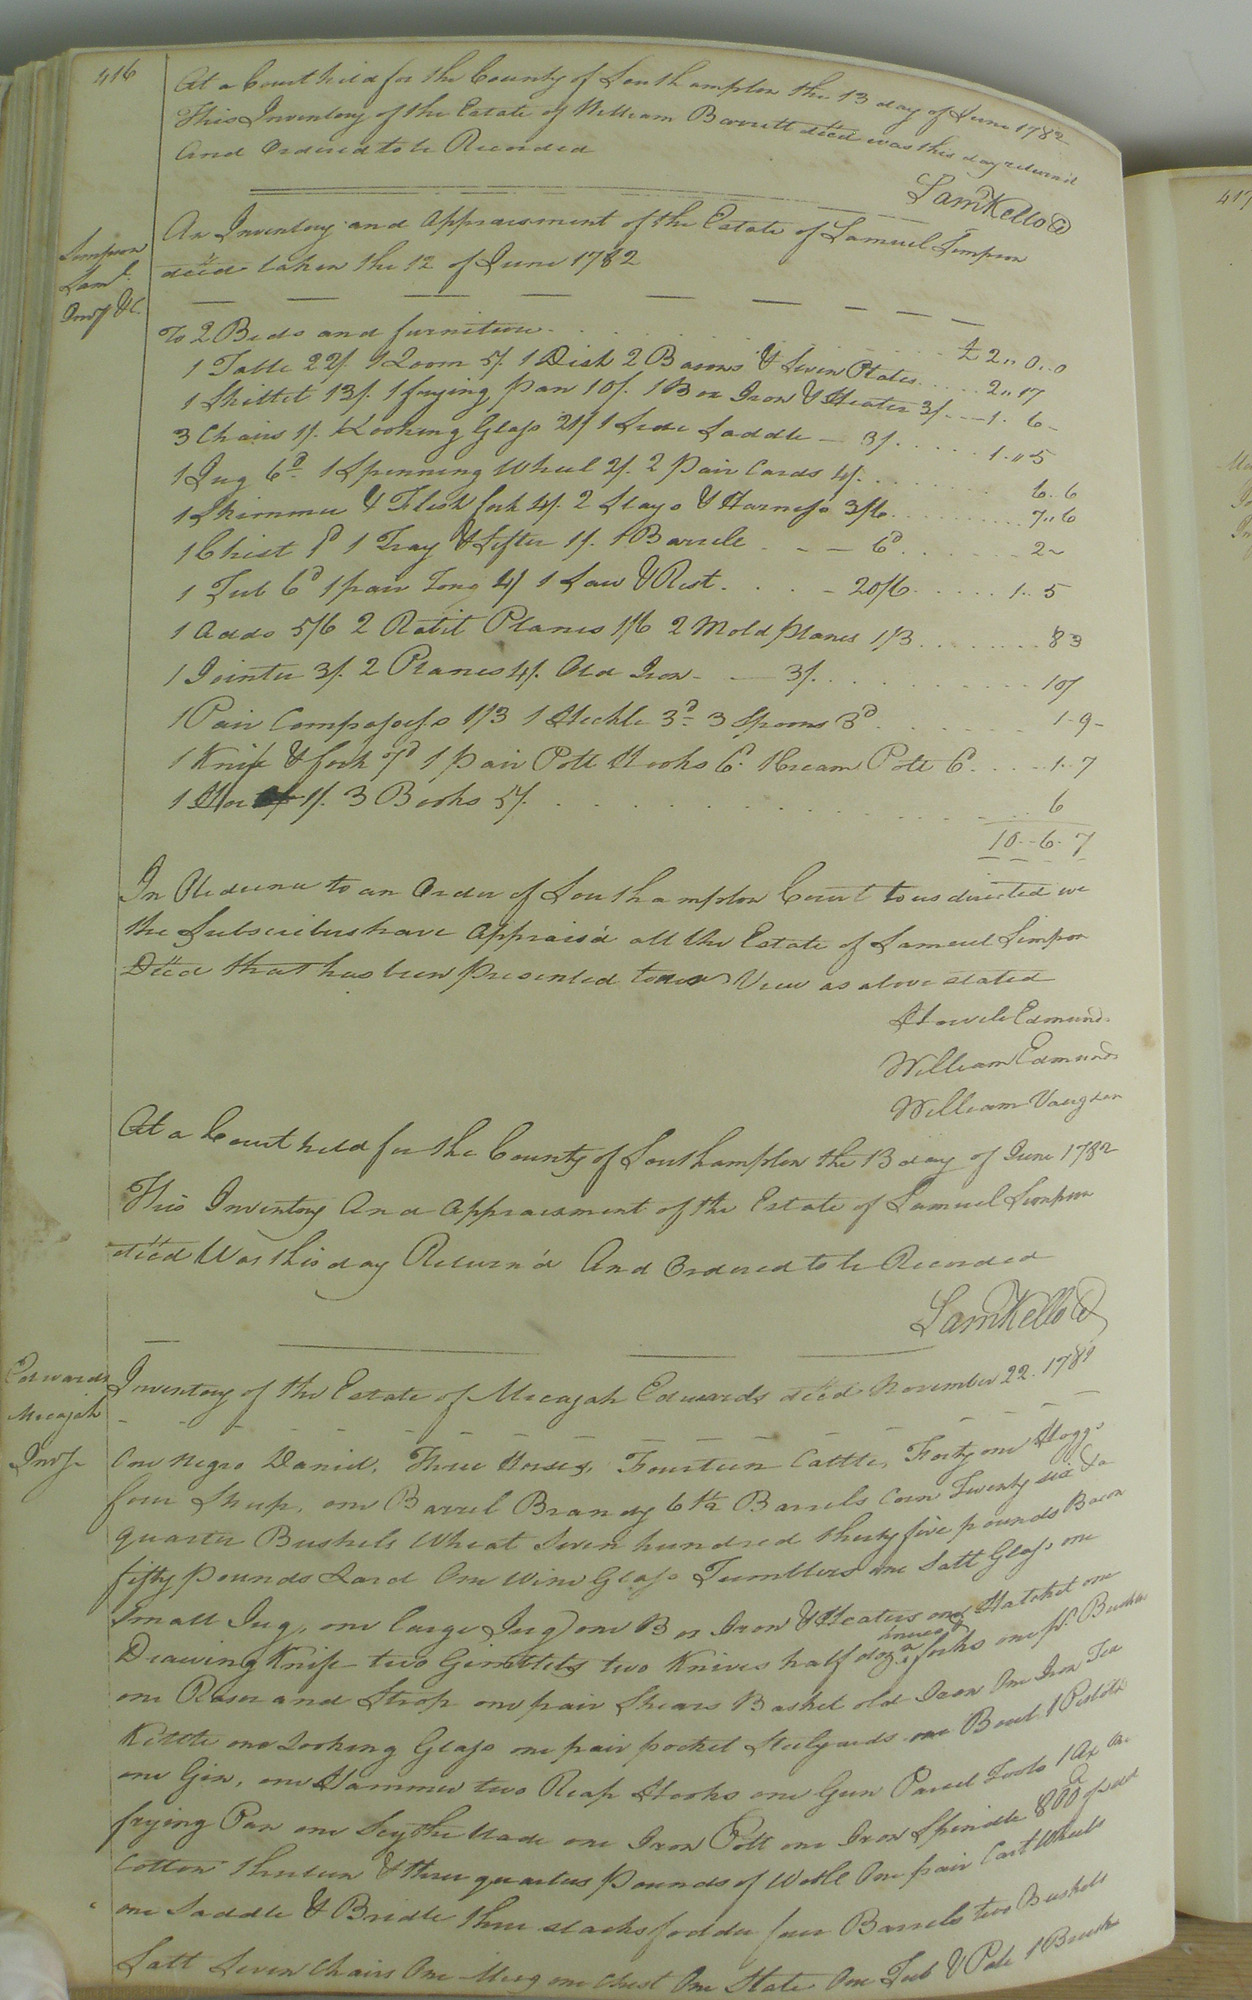 416
At a Court held for the County of Southampton the 13 day of June 1782
This Inventory of the Estate of William Barrett dec'd was this day return'd
And Ordered to be Recorded
Sam Kello
Simpson
Sam.l
Inv.y &C.
An Inventory and Appraisment of the Estate of Samuel Simpson
dec'd taken the 12 of June 1782
To 2 Beds and furniture £ 2,, 0,, 0
1 Table 22/. 1 Loom 5/. 1 Dish 2 Basons & Seven Plates 2,, 17
1 Skillet 13/. 1 frying pan 10/. 1 Box Iron & Heater 3/. 1. 6
3 Chairs 1/. 1 Looking Glass 21/ 1 Side Saddle 3/. 1.,, 5
1 Jug 6d 1 Spinning Wheel 2/. 2 pair Cards 4/. 6. 6
1 Skimmer & Flesh fork 4/. 2 Slays & Harness 3/6 7,, 6
1 Chist 1 Tray & Sifter 1/. 1 Barrele 6d 2
1 Tub 6d 1 pair Tong 4/ 1 Saw & Rest 20/6 1.. 5
1 Adds 5/6 2 Rabit Planes 1/6 2 Mold planes 1/3 8 3
1 Jointer 3/. 2 Planes 4/. Old Iron 3/. 10/
1 Pair Compasses 1/3 1 Heckle 3d 3 Spoons 3d 1-9
1 Knife & fork 7d 1 pair Pott Hooks 6d. 1 Cream Pott 6. 1.. 7
1 Hoe 1/. 3 Books 5/. 6
10..6.7
In Obedience to an Order of Southampton Court to us directed we
the Subscribers have Appraisd all the Estate of Samuel Simpson
Dec'd that has been presented to our View as above stated
Howele Edmunds
William Edmunds
William Vaughan
At a Court held for the County of Southampton the 13 day of June 1782
This Inventory And Appraisment of the Estate of Samuel Simpson
dec'd Was this day Return'd And Ordered to be Recorded
Sam Kello
Edwards
Micajah
Inv.y
Inventory of the Estate of Micajah Edwards dec'd November 22. 1781
One Negro Daniel, Three Horses, Fourteen Cattle, Forty one Hoggs
four Sheep, one Barrel Brandy 6 1/2 Barrels Corn Twenty six &a
quarter Bushels Wheat Seven hundred thirty five pounds Bacon
fifty pounds Lard One Wine Glass Tumblers one Salt Glass one
Small Jug, one large Jug one Box Iron & Heaters one Hatchet one
Drawing Knife two Gimblets two Knives half doz knives & forks one pr. Buckles
one Rasor and Strop one pair Shears Basket old Iron One Iron Tea
Kittle one Looking Glass one pair pocket Steelyards one Bowl 1 Pistole
one Gin, one Hammer two Reap Hooks one Gun Parcel Tools 1 Ax One
frying Pan one Scythe blade one Iron Pott one Iron Spindle 800 lb of seed
Cotton thirteen & three quarters pounds of Wool One pair Cart Wheels
one Saddle & Bridle three stacks fodder four Barrels two Bushels
Salt Seven Chairs One Mug one Chest One Slate One Tub & Pale 1 Brush
417